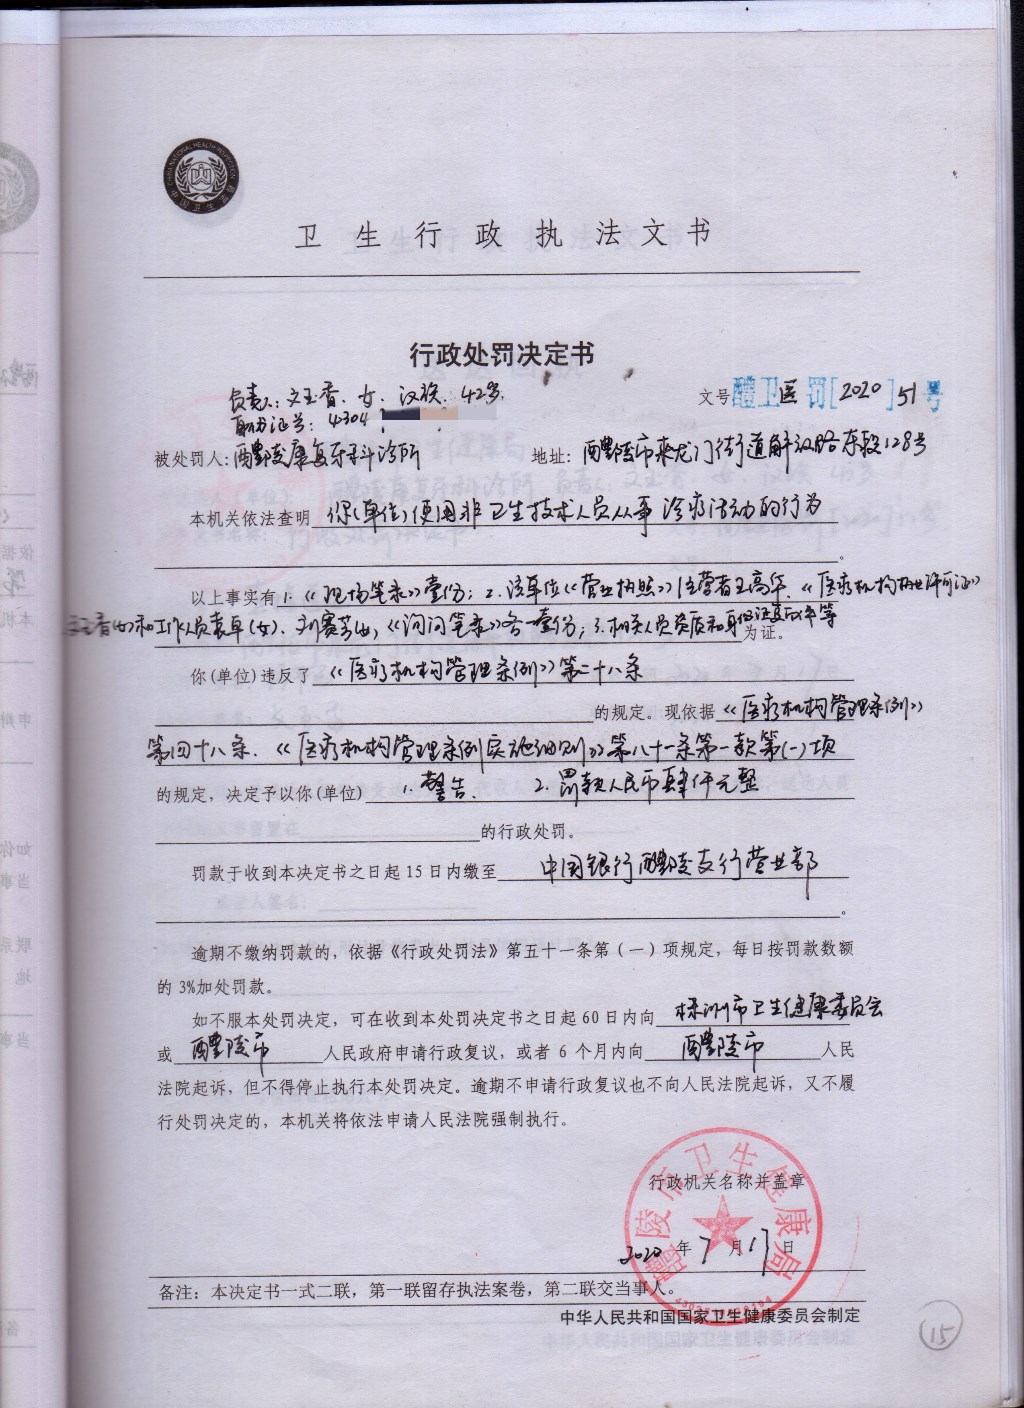 卫生行政执法文书
行政处罚决定书
文号 醴卫医罚[2020]51号
负责人:文玉香、女、汉族、42岁,
身份证号:4304
被处罚人:醴陵康复牙科诊所 地址:醴陵市来龙门街道解放路东段128号
本机关依法查明 你(单位)使用非卫生技术人员从事诊疗活动的行为
。
以上事实有 1.《现场笔录》壹份;2.该单位《营业执照》经营者王高华、《医疗机构执业许可证》
文玉香(女)和工作人员袁草(女)、刘赛芳(女)《询问笔录》各一壹份;3.相关人员资质和身份证复印件等 为证。
你(单位)违反了《医疗机构管理条例》第二十八条
的规定。现依据《医疗机构管理条例》
第四十八条、《医疗机构管理条例实施细则》第八十一条第一款第(一)项
的规定,决定予以你(单位) 1.警告、 2.罚款人民币肆仟元整
的行政处罚。
罚款于收到本决定书之日起15日内缴至 中国银行醴陵支行营业部
。
逾期不缴纳罚款的,依据《行政处罚法》第五十一条第(一)项规定,每日按罚款数额
的3%加处罚款。
如不服本处罚决定,可在收到本处罚决定书之日起60日内向 株洲市卫生健康委员会
或 醴陵市 人民政府申请行政复议,或者6个月内向 醴陵市 人民
法院起诉,但不得停止执行本处罚决定。逾期不申请行政复议也不向人民法院起诉,又不履
行处罚决定的,本机关将依法申请人民法院强制执行。
醴陵市卫生健康局
行政机关名称并盖章
2020年7月17日
备注:本决定书一式二联,第一联留存执法案卷,第二联交当事人。
中华人民共和国国家卫生健康委员会制定
15